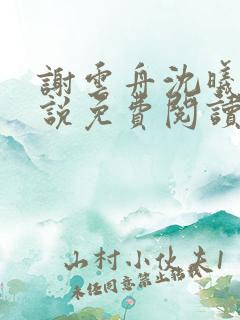 謝雲舟沈曦
說免費閱讀
山村小伙夫1
未任同意禁止轉載